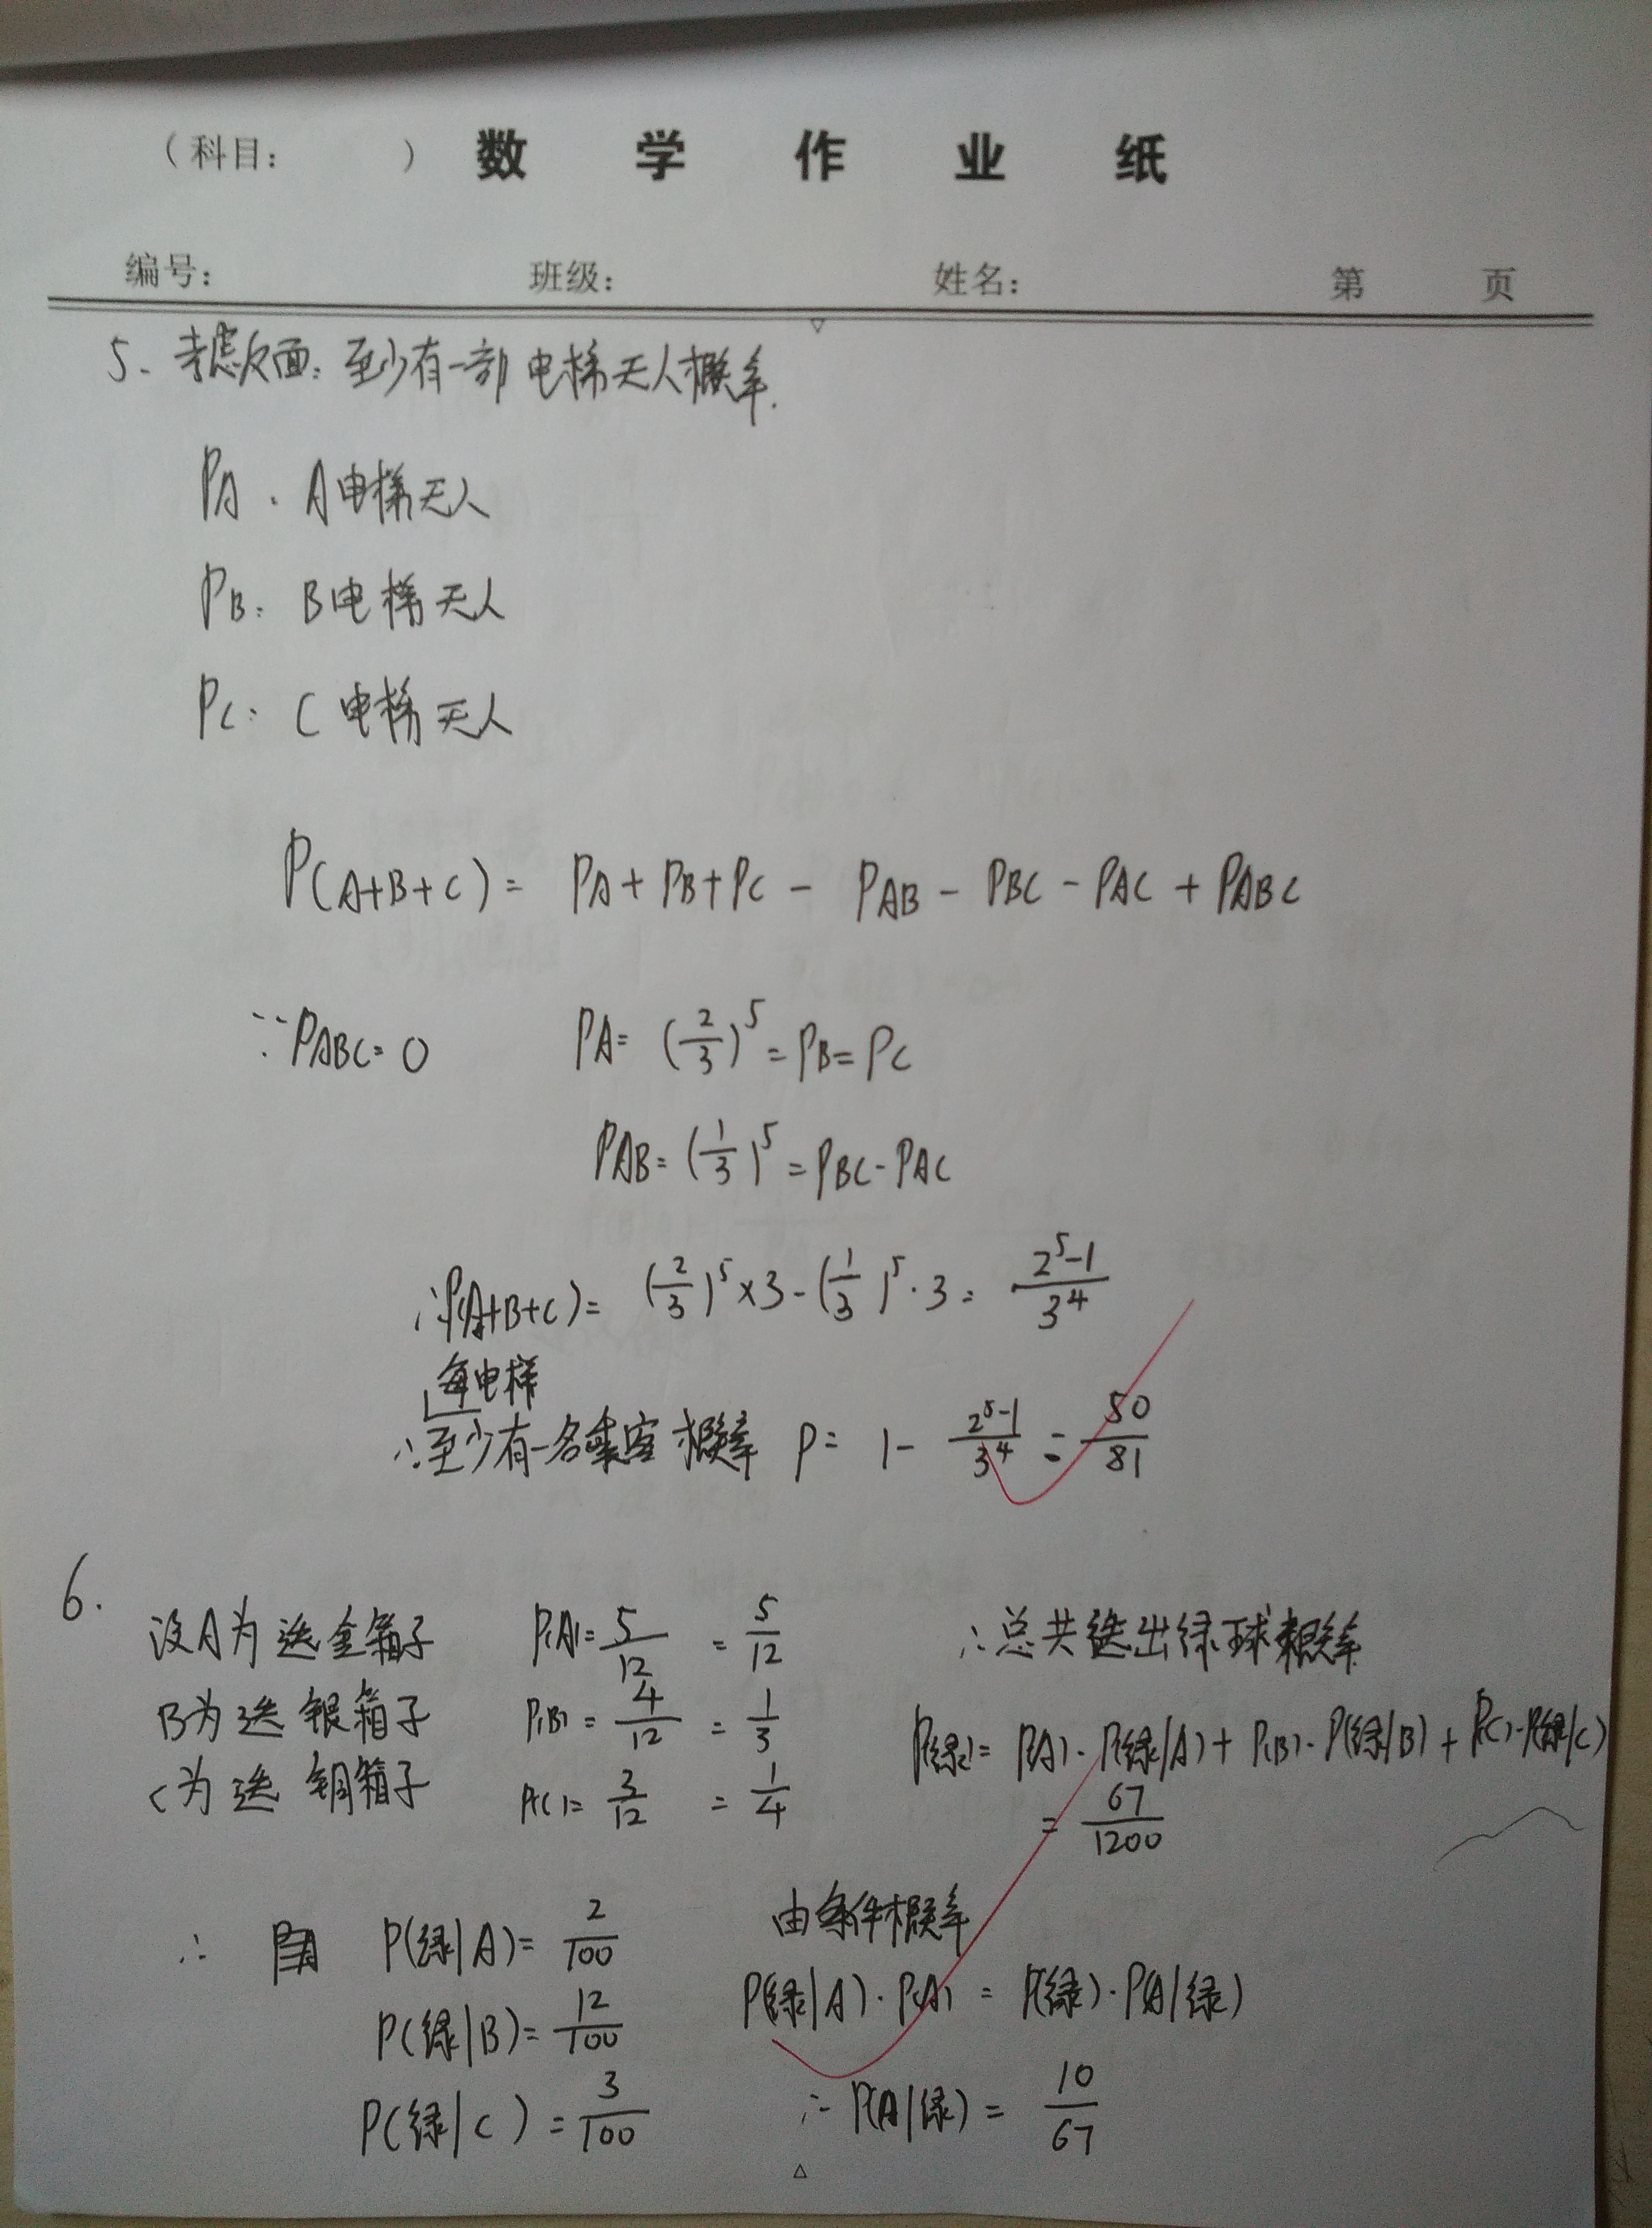 （科目： ） 数 学 作 业 纸
编号： 班级： 姓名： 第 页
5. 考虑反面：至少有一部电梯无人概率.
PA：A电梯无人
PB：B电梯无人
PC：C电梯无人
P(A+B+C) = PA + PB + PC - PAB - PBC - PAC + PABC
∵PABC=0 PA= (2/3)^5 = PB = PC
PAB= (1/3)^5 = PBC - PAC
∴P(A+B+C) = (2/3)^5 × 3 - (1/3)^5 · 3 = (2^5-1)/3^4
每电梯
∴至少有一名乘客概率 P = 1 - (2^5-1)/3^4 = 50/81
6.
设A为选金箱子 P(A)= 5/12 = 5/12
B为选银箱子 P(B) = 4/12 = 1/3
C为选铜箱子 P(C) = 3/12 = 1/4
∴ P(绿|A) = 2/100
P(绿|B) = 12/100
P(绿|C) = 3/100
∴总共选出绿球概率
P(绿) = P(A)·P(绿|A) + P(B)·P(绿|B) + P(C)·P(绿|C)
= 67/1200
由条件概率
P(绿|A)·P(A) = P(绿)·P(A|绿)
∴ P(A|绿) = 10/67